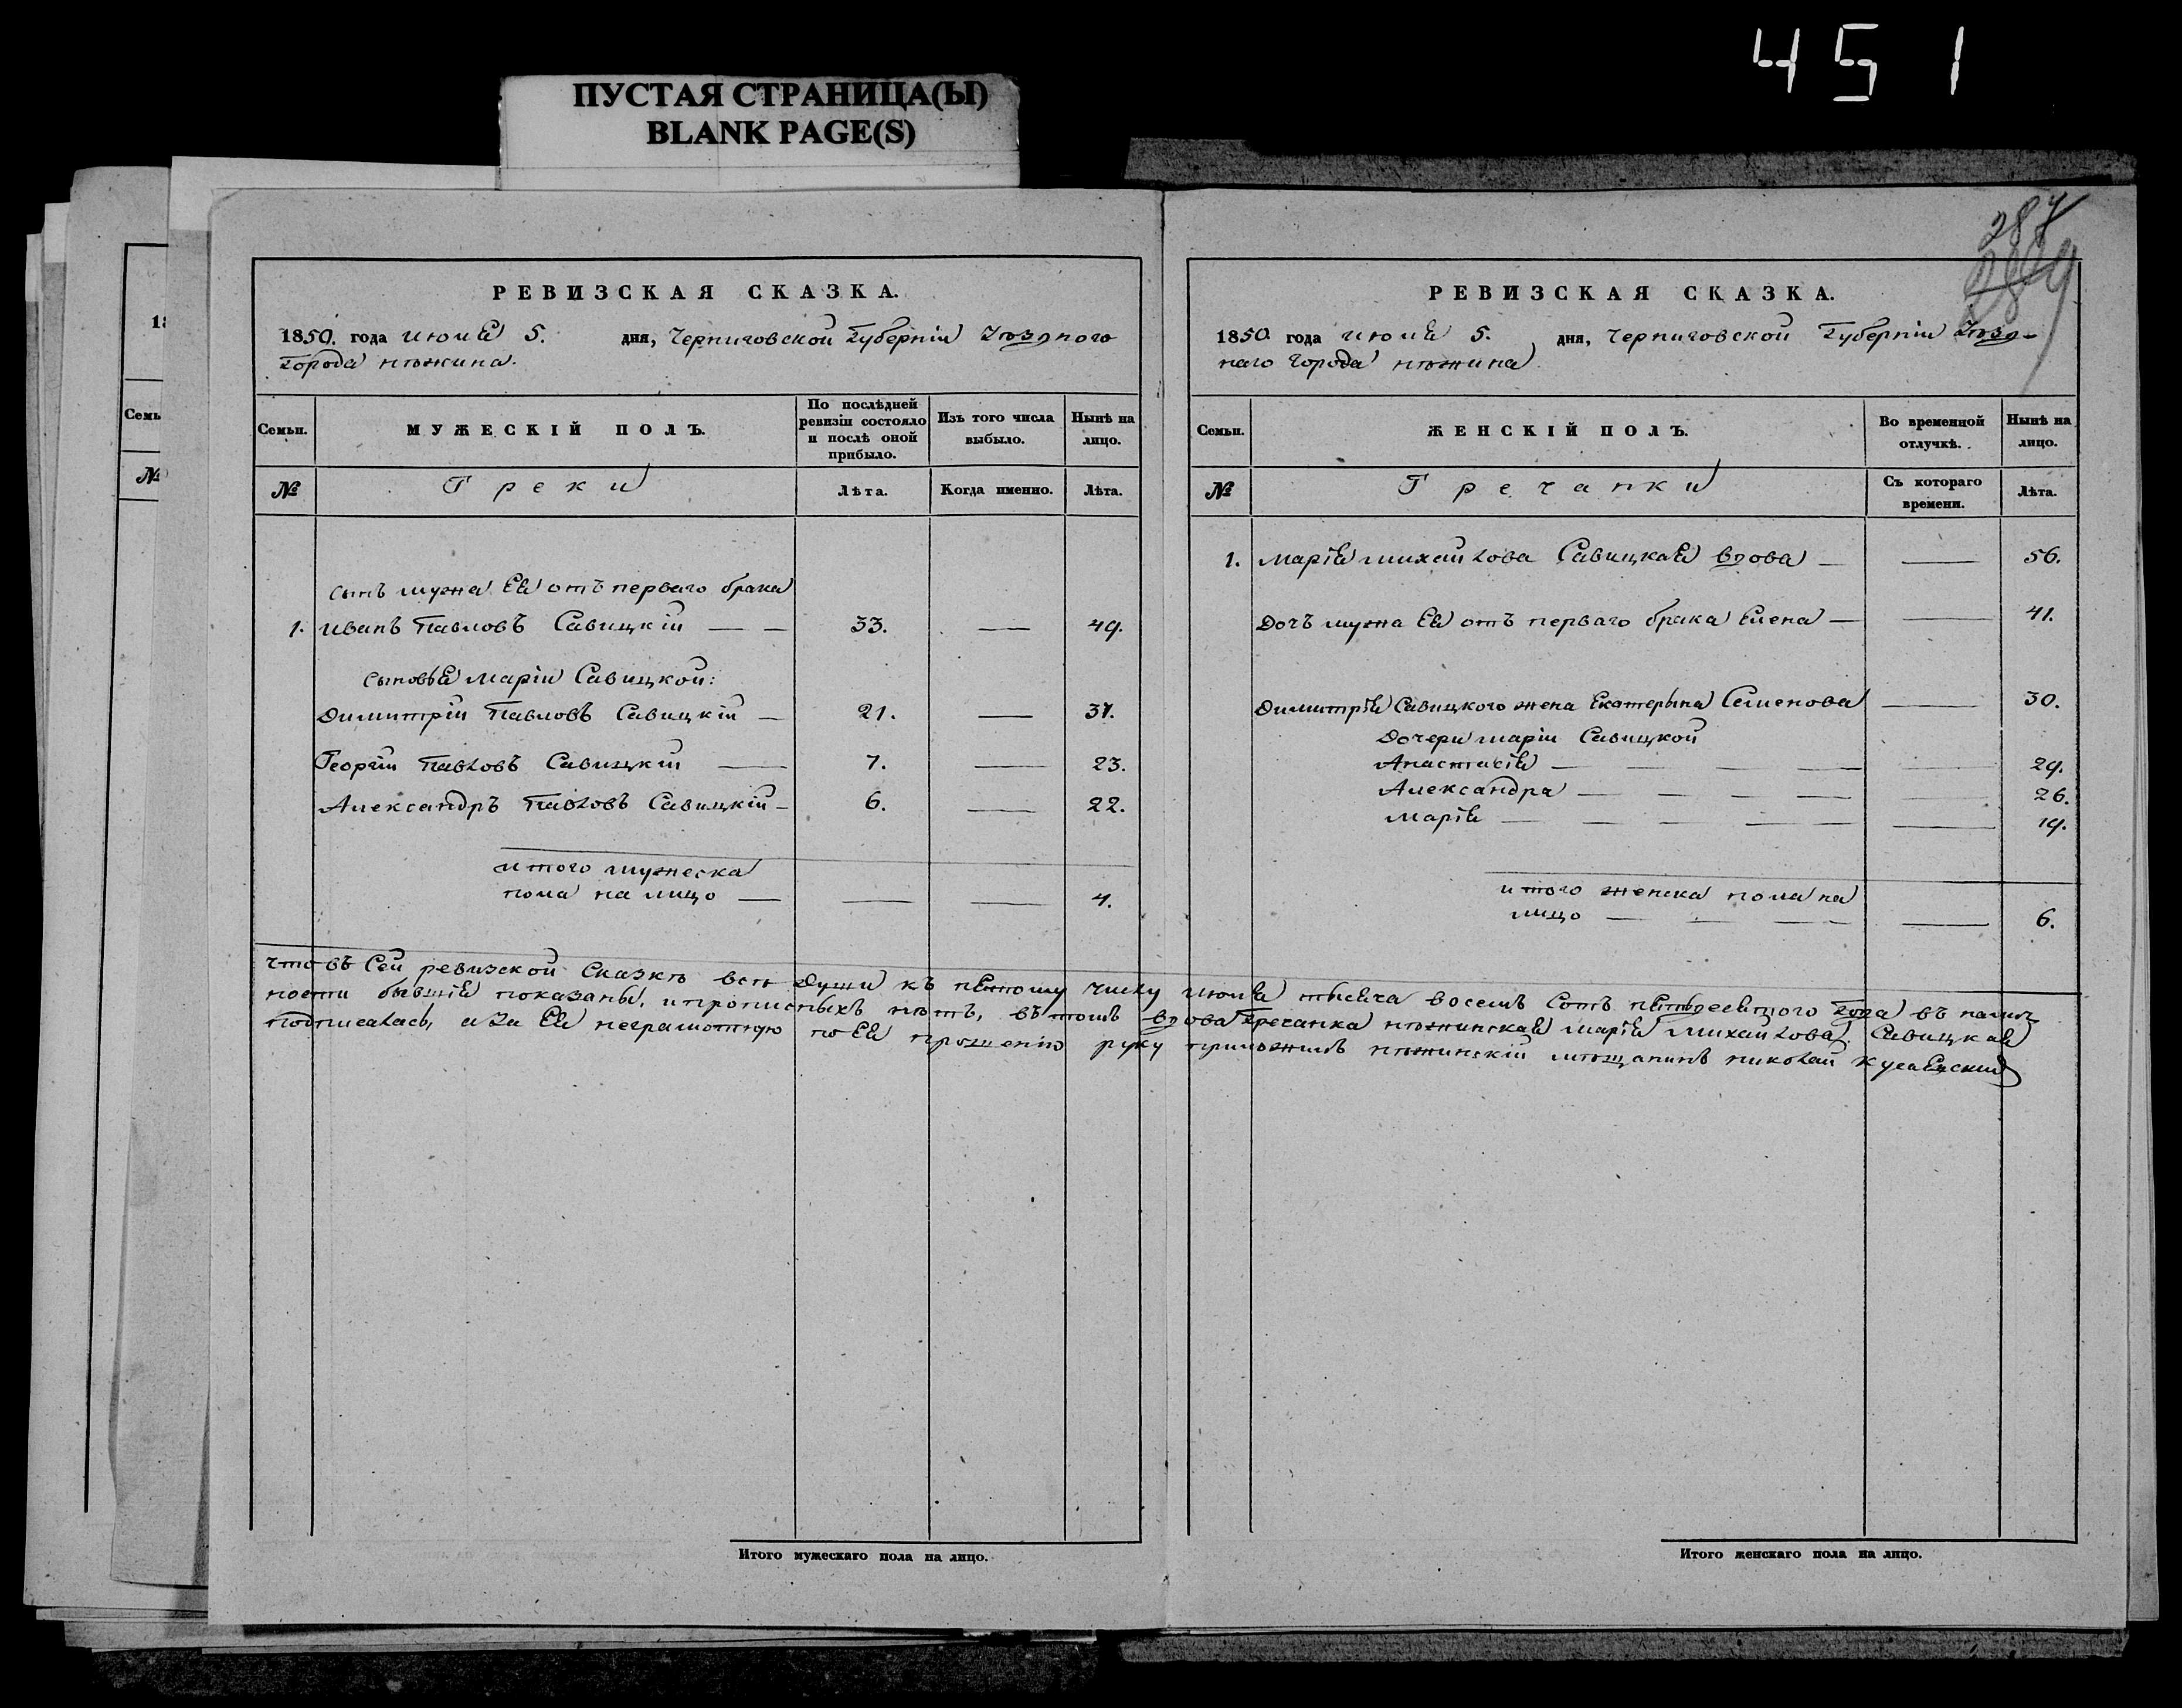 451
ПУСТАЯ СТРАНИЦА(Ы)
BLANK PAGE(S)
18
Семь
№
РЕВИЗСКАЯ СКАЗКА.
1850. года июля 5. дня, Черниговской Губерніи Уѣздного
Города нѣжина.
Семьи.
МУЖЕСКІЙ ПОЛЪ.
По послѣдней ревизіи состояло и послѣ оной прибыло.
Изъ того числа выбыло.
Нынѣ на лицо.
№
Греки
Лѣта.
Когда именно.
Лѣта.
сынъ мужа Ея отъ перваго брака
1. иванъ Павловъ Савицкій — — 33. — 49.
сыновья маріи Савицкой:
Димитрій Павловъ Савицкій — 21. — 37.
Георгій Павловъ Савицкій — 7. — 23.
Александръ Павловъ Савицкій — 6. — 22.
итого мужеска
пола на лицо — — — 4.
Итого мужескаго пола на лицо.
287
РЕВИЗСКАЯ СКАЗКА.
1850 года июля 5. дня, Черниговской Губерніи Уѣзд-
наго Города нѣжина
Семьи.
ЖЕНСКІЙ ПОЛЪ.
Во временной отлучкѣ.
Нынѣ на лицо.
№
Гречанки
Съ котораго времени.
Лѣта.
1. марія михайлова Савицкая вдова — — 56.
Дочъ мужа Ея отъ перваго брака Елена — — 41.
Димитрія Савицкого жена Екатерына Семенова — 30.
Дочери маріи Савицкой
Анастасія — — — — — 29.
Александра — — — — — 26.
марія — — — — — — 19.
итого женска пола на
лицо — — — — 6.
Итого женскаго пола на лицо.
что въ Сей ревизской Сказкѣ всѣ души къ пятому числу июля тысяча восемъ Сотъ пятьдесятого Года въ налич-
ности бывшія показаны, и прописныхъ нѣтъ, въ томъ вдова Гречанка нѣжинская марія михайлова Савицкая
подписалась, а за Ея неграмотную по Ея прошенію руку приложилъ нѣжинскій мѣщанинъ николай